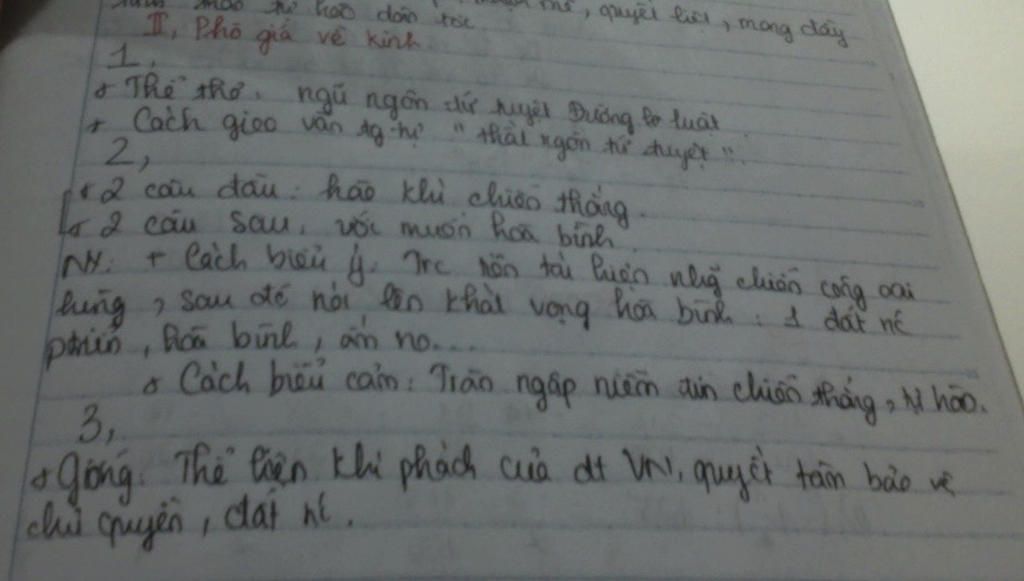 tự hào dân tộc. mẽ, quyết liệt, mang đầy
II, Phò giá về kinh.
1,
+ Thể thơ: ngũ ngôn tứ tuyệt Đường luật
+ Cách gieo vần tg tự "thất ngôn tứ tuyệt".
2,
+ 2 câu đầu: hào khí chiến thắng.
+ 2 câu sau: ước muốn hoà bình.
NX: + Cách biểu ý: Trc hồn tái hiện nhg chiến công oai
hùng, sau đó nói lên khát vọng hoà bình: 1 đất nc
phiền, hoà bình, ấm no....
+ Cách biểu cảm: Tràn ngập niềm tin chiến thắng, tự hào.
3,
+ Giống: Thể hiện khí phách của dt VN, quyết tâm bảo vệ
chủ quyền, đất nc.